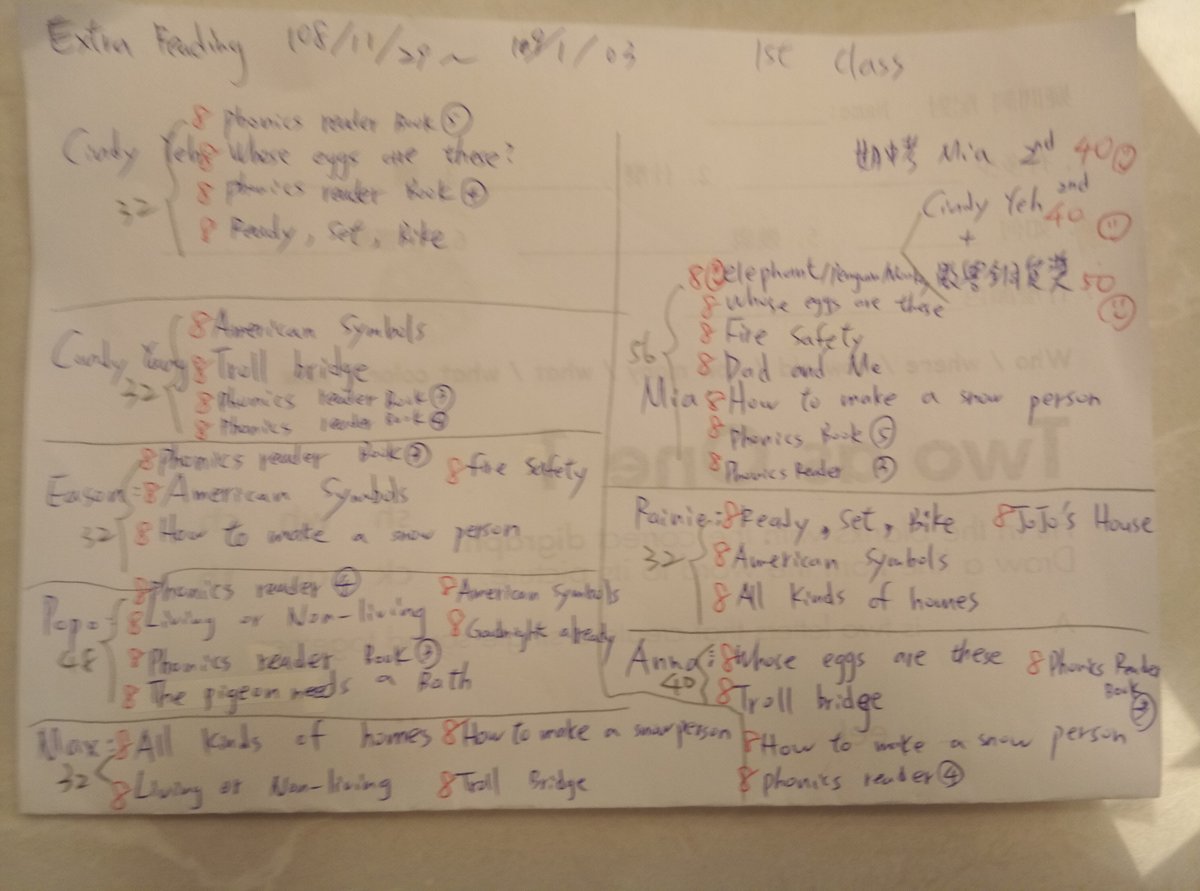 Extra Reading 108/11/29 ~ 109/1/03 1st Class
Cindy Yeh 32
8 phonics reader Book ⑤
8 Whose eggs are these?
8 phonics reader Book ④
8 Ready, Set, Bike
Candy Yang 32
8 American Symbols
8 Troll bridge
8 Phonics reader Book ③
8 Phonics reader Book ④
Eason: 32
8 phonics reader Book ③ 8 fire safety
8 American Symbols
8 How to make a snow person
Pope: 48
8 Phonics reader ④ 8 American Symbols
8 Living or Non-living 8 Goodnight already
8 Phonics reader Book ③
8 The pigeon needs a Bath
Max: 32
8 All kinds of homes 8 How to make a snow person
8 Living or Non-living 8 Troll Bridge
期中考 Mia 2nd 40
Cindy Yeh 2nd 40
+
50
Mia 56
8 elephant/penguin/
8 Whose eggs are these
8 Fire Safety
8 Dad and Me
8 How to make a snow person
8 Phonics Book ⑤
8 Phonics Reader ③
Rainie: 32
8 Ready, Set, Bike 8 JoJo's House
8 American Symbols
8 All kinds of homes
Anna: 40
8 Whose eggs are these 8 Phonics Reader Book ③
8 Troll bridge
8 How to make a snow person
8 phonics reader ④
Who / where / what / what color
Two as One